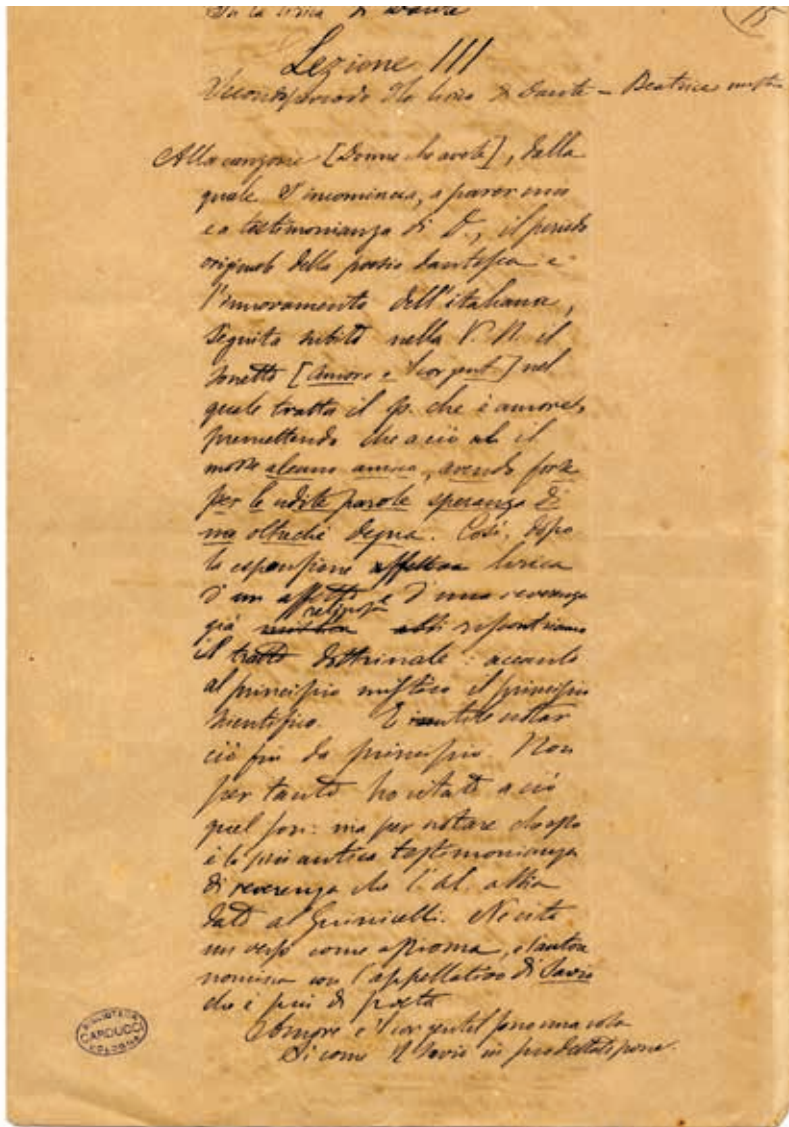 Per la lirica di Dante
15
Lezione III
Secondo periodo della lirica di Dante – Beatrice
Alla canzone [Donne che avete], dalla
quale s'incomincia, a parer mio
e a testimonianza di D., il periodo
originale della poesia dantesca e
l'innovamento dell'italiana,
seguita subito nella V. N. il
sonetto [Amore e 'l cor gent.] nel
quale tratta il p. che è amore,
premettendo che a ciò il
mosse alcuno amico, avendo forse
per le udite parole speranza di
me oltreché degna. Così, dopo
la espansione lirica
d'un affetto e d'una reverenza
religiosa
già mistica
il tratto dottrinale: accanto
al principio mistico il principio
scientifico. E notar
ciò fin da principio. Non
per tanto ho citato a ciò
quel son: ma per notare che esso
è la più antica testimonianza
di reverenza che l'al. abbia
dato al Guinicelli. Ne cita
un verso come assioma, e l'autore
nomina con l'appellativo di Savio
che è più di poeta
Amore e 'l cor gentil sono una cosa
Sì come il Savio in suo dettato pone.
BIBLIOTECA
CARDUCCI
BOLOGNA